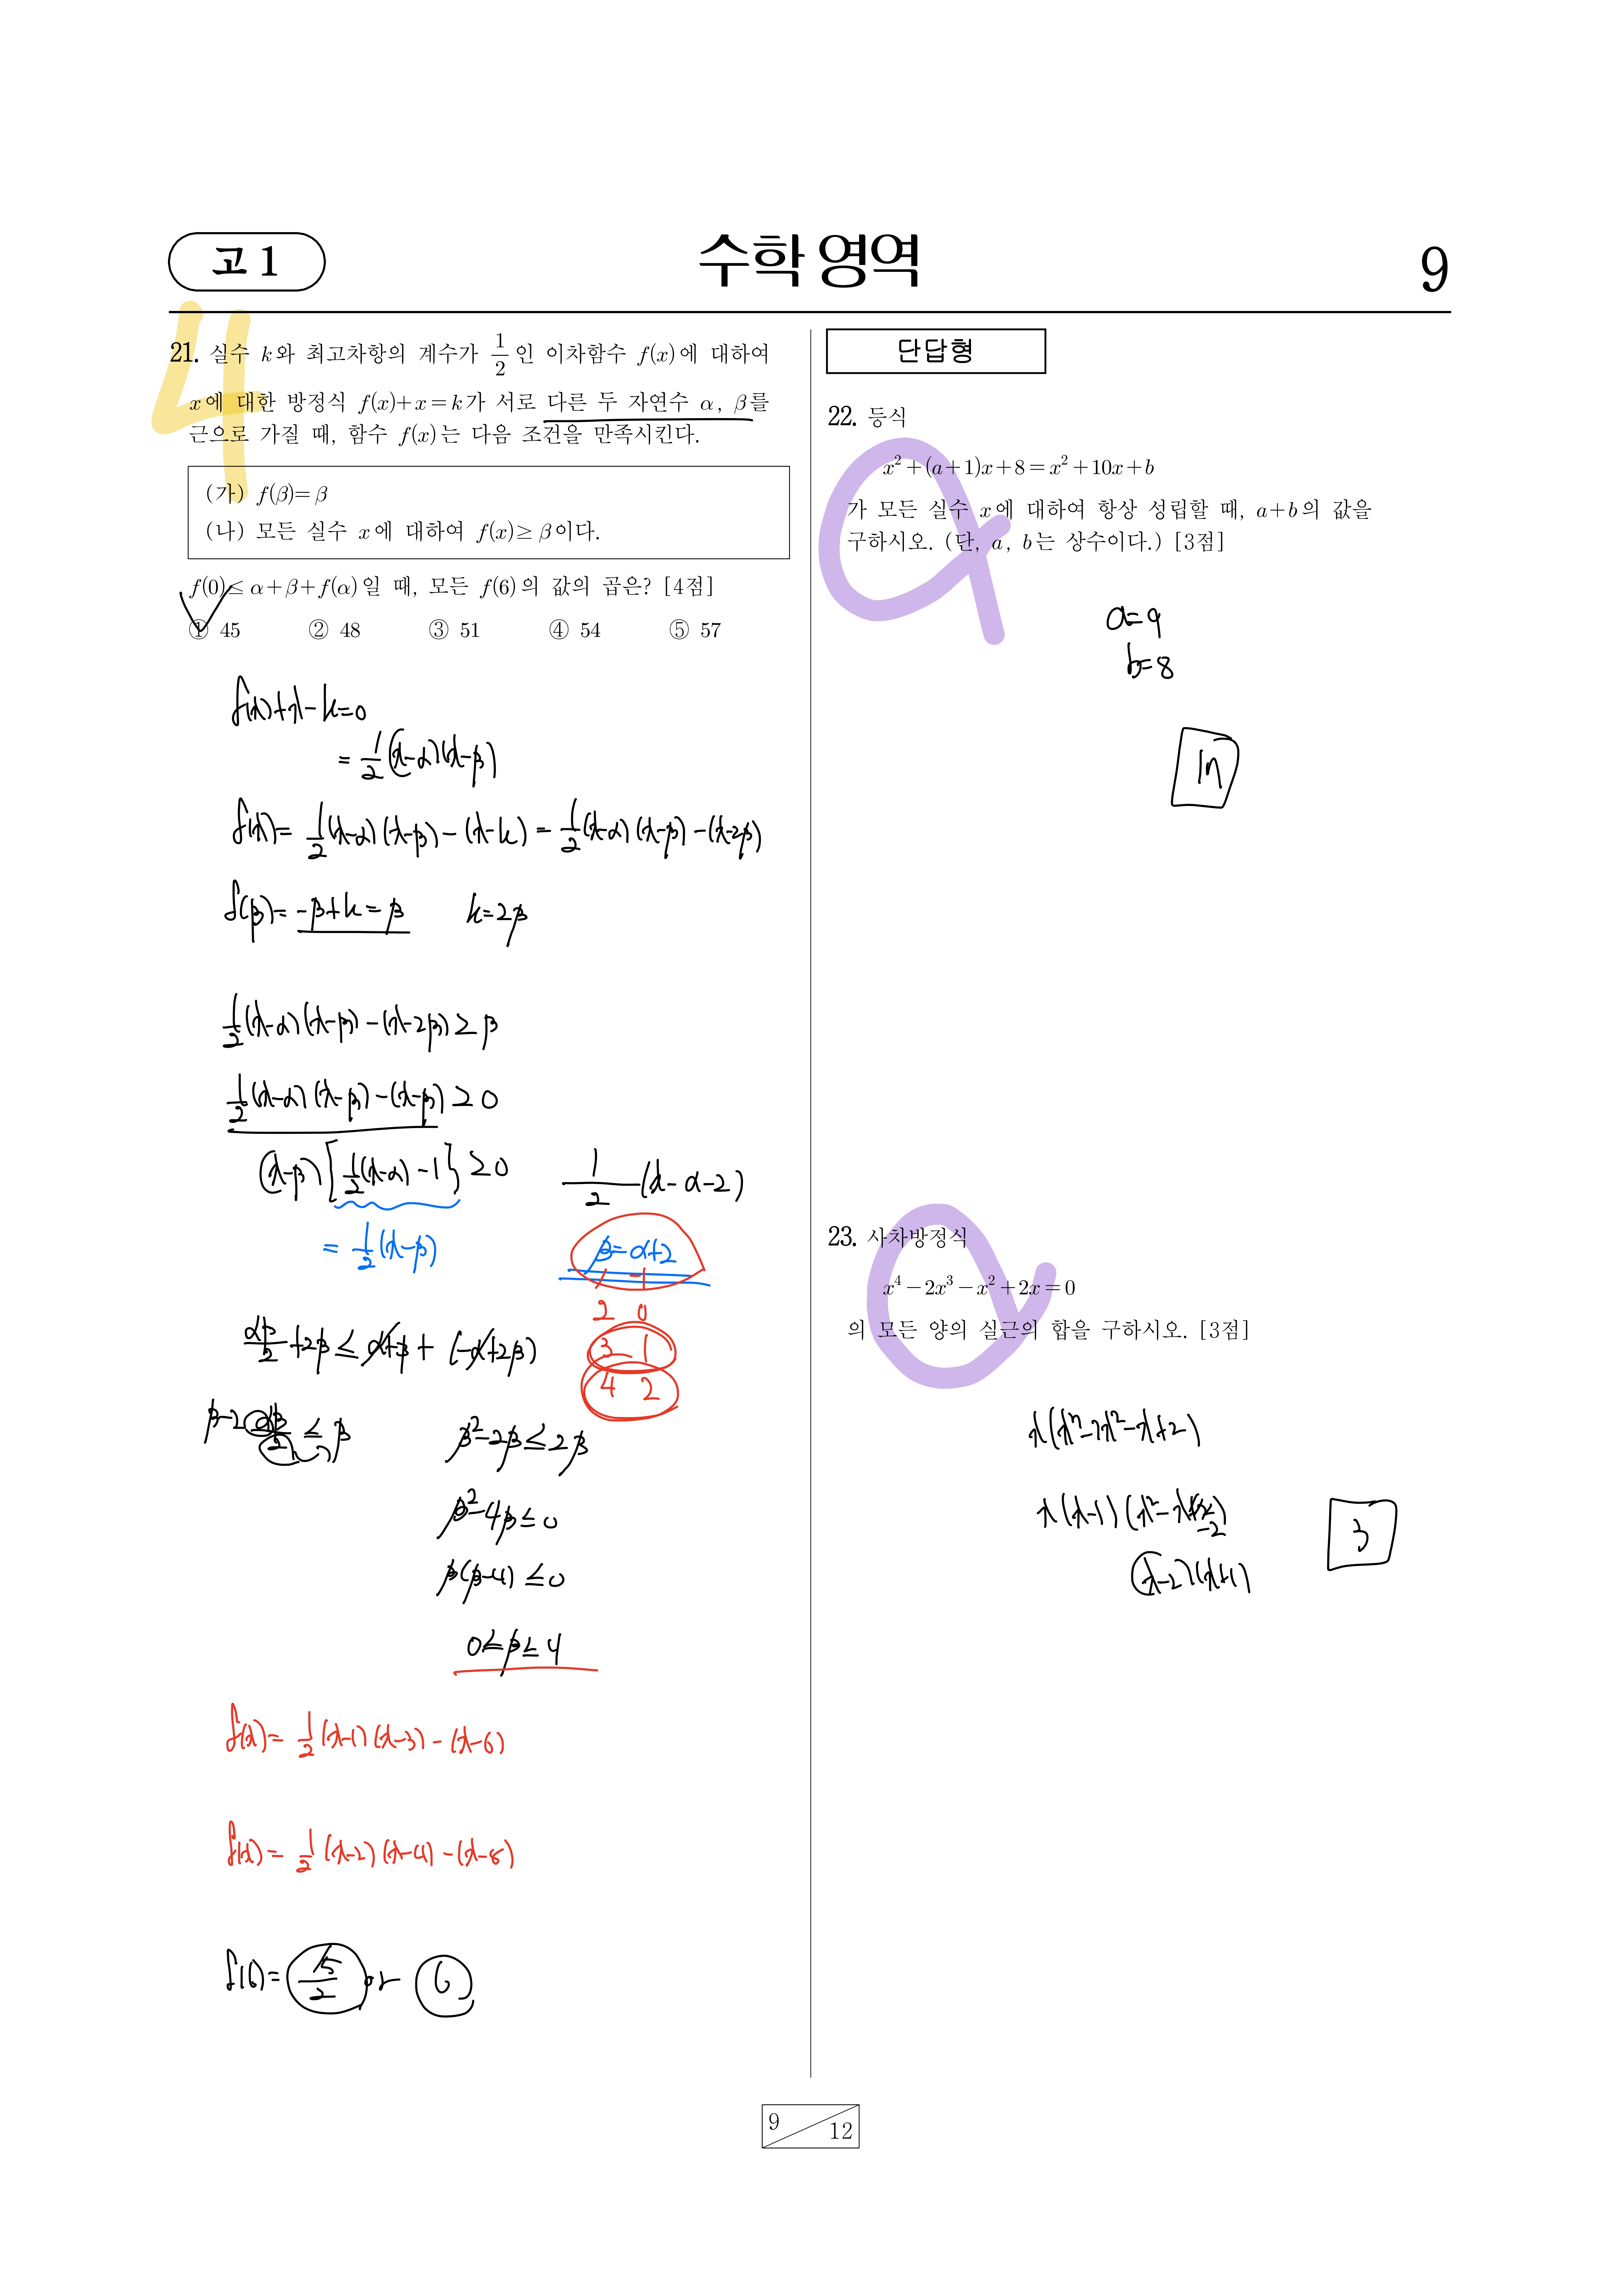 고 1
수학 영역
9
4
21. 실수 k와 최고차항의 계수가 1/2 인 이차함수 f(x)에 대하여
x에 대한 방정식 f(x)+x=k가 서로 다른 두 자연수 α, β를
근으로 가질 때, 함수 f(x)는 다음 조건을 만족시킨다.
(가) f(β)=β
(나) 모든 실수 x에 대하여 f(x)≥β이다.
f(0)≤α+β+f(α)일 때, 모든 f(6)의 값의 곱은? [4점]
① 45 ② 48 ③ 51 ④ 54 ⑤ 57
f(x)+x-k=0
=1/2(x-α)(x-β)
f(x)=1/2(x-α)(x-β)-(x-k)=1/2(x-α)(x-β)-(x-2β)
f(β)=-β+k=β k=2β
1/2(x-α)(x-β)-(x-2β)≥β
1/2(x-α)(x-β)-(x-β)≥0
(x-β)[1/2(x-α)-1]≥0 1/2(x-α-2)
=1/2(x-β) β=α+2
1 -1
2 0
3 1
4 2
αβ/2+2β≤α+β+(-α+2β)
β-2 αβ/2≤β β²-2β≤2β
β²-4β≤0
β(β-4)≤0
0≤β≤4
f(x)=1/2(x-1)(x-3)-(x-6)
f(x)=1/2(x-2)(x-4)-(x-8)
f(6)=15/2 or 6
단답형
22. 등식
x²+(a+1)x+8=x²+10x+b
가 모든 실수 x에 대하여 항상 성립할 때, a+b의 값을
구하시오. (단, a, b는 상수이다.) [3점]
a=9
b=8
17
23. 사차방정식
x⁴-2x³-x²+2x=0
의 모든 양의 실근의 합을 구하시오. [3점]
x(x³-2x²-x+2)
x(x-1)(x²-x-2)
(x-2)(x+1)
3
9 12